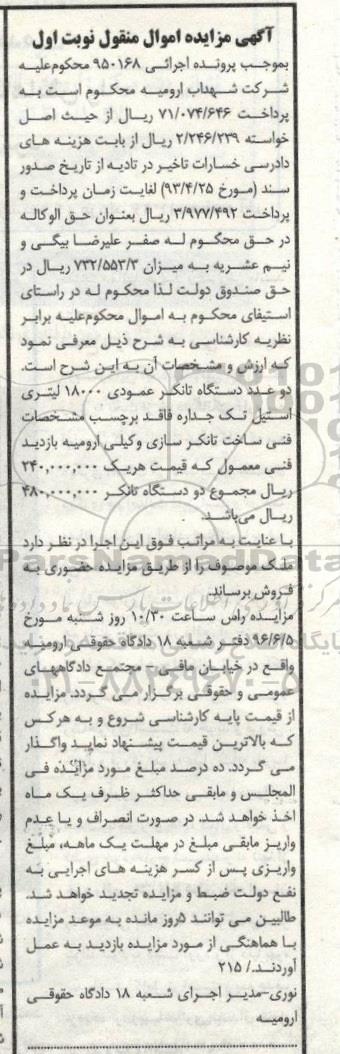 آگهی مزایده اموال منقول نوبت اول
بموجب پرونده اجرائی ۹۵۰۱۶۸ محکوم‌علیه
شرکت شهداب ارومیه محکوم است به
پرداخت ۷۱/۰۷۴/۶۴۶ ریال از حیث اصل
خواسته ۲/۲۴۶/۲۳۹ ریال از بابت هزینه های
دادرسی خسارات تاخیر در تادیه از تاریخ صدور
سند (مورخ ۹۳/۴/۲۵) لغایت زمان پرداخت و
پرداخت ۳/۹۷۷/۴۹۲ ریال بعنوان حق الوکاله
در حق محکوم له صفر علیرضا بیگی و
نیم عشریه به میزان ۷۳۲/۵۵۳/۳ ریال در
حق صندوق دولت لذا محکوم له در راستای
استیفای محکوم به اموال محکوم‌علیه برابر
نظریه کارشناسی به شرح ذیل معرفی نمود
که ارزش و مشخصات آن به این شرح است.
دو عدد دستگاه تانکر عمودی ۱۸۰۰۰ لیتری
استیل تک جداره فاقد برچسب مشخصات
فنی ساخت تانکر سازی وکیلی ارومیه بازدید
فنی معمول که قیمت هریک ۲۴۰,۰۰۰,۰۰۰
ریال مجموع دو دستگاه تانکر ۴۸۰,۰۰۰,۰۰۰
ریال می‌باشد.
با عنایت به مراتب فوق این اجرا در نظر دارد
ملک موصوف را از طریق مزایده حضوری به
فروش برساند.
مزایده راس ساعت ۱۰/۳۰ روز شنبه مورخ
۹۶/۶/۵ دفتر شعبه ۱۸ دادگاه حقوقی ارومیه
واقع در خیابان مافی- مجتمع دادگاههای
عمومی و حقوقی برگزار می گردد. مزایده
از قیمت پایه کارشناسی شروع و به هرکس
که بالاترین قیمت پیشنهاد نماید واگذار
می گردد. ده درصد مبلغ مورد مزایده فی
المجلس و مابقی حداکثر ظرف یک ماه
اخذ خواهد شد. در صورت انصراف و یا عدم
واریز مابقی مبلغ در مهلت یک ماهه، مبلغ
واریزی پس از کسر هزینه های اجرایی به
نفع دولت ضبط و مزایده تجدید خواهد شد.
طالبین می توانند ۵روز مانده به موعد مزایده
با هماهنگی از مورد مزایده بازدید به عمل
آوردند./ ۲۱۵
نوری-مدیر اجرای شعبه ۱۸ دادگاه حقوقی
ارومیه
ParsNamadData
۰۲۱-۸۸۳۴۹۶۷۰-۵